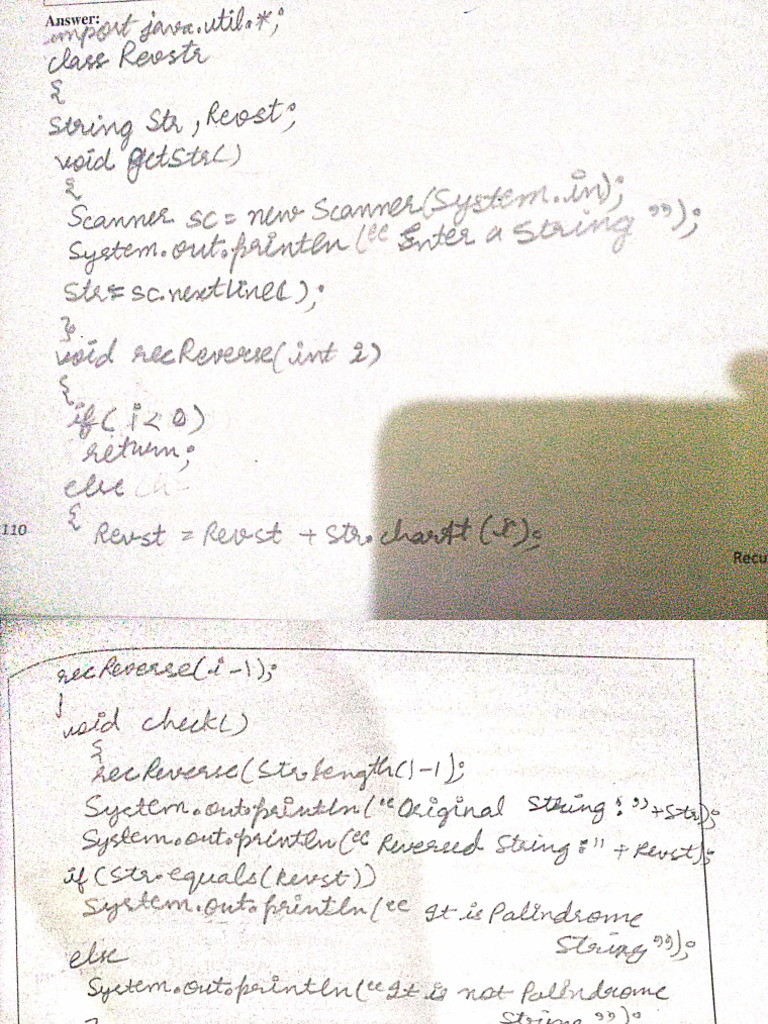 Answer:
import java.util.*;
class Revstr
{
String Str, Revst;
void getStr()
{
Scanner sc = new Scanner(System.in);
System.out.println("Enter a String");
Str = sc.nextLine();
}
void recReverse(int i)
{
if(i<0)
return;
else
{ Revst = Revst + Str.charAt(i);
110
Recu
recReverse(i-1);
}
void check()
{
recReverse(Str.length()-1);
System.out.println("Original String:"+Str);
System.out.println("Reversed String:"+Revst);
if(Str.equals(Revst))
System.out.println("It is Palindrome
String");
else
System.out.println("It is not Palindrome
String");
}